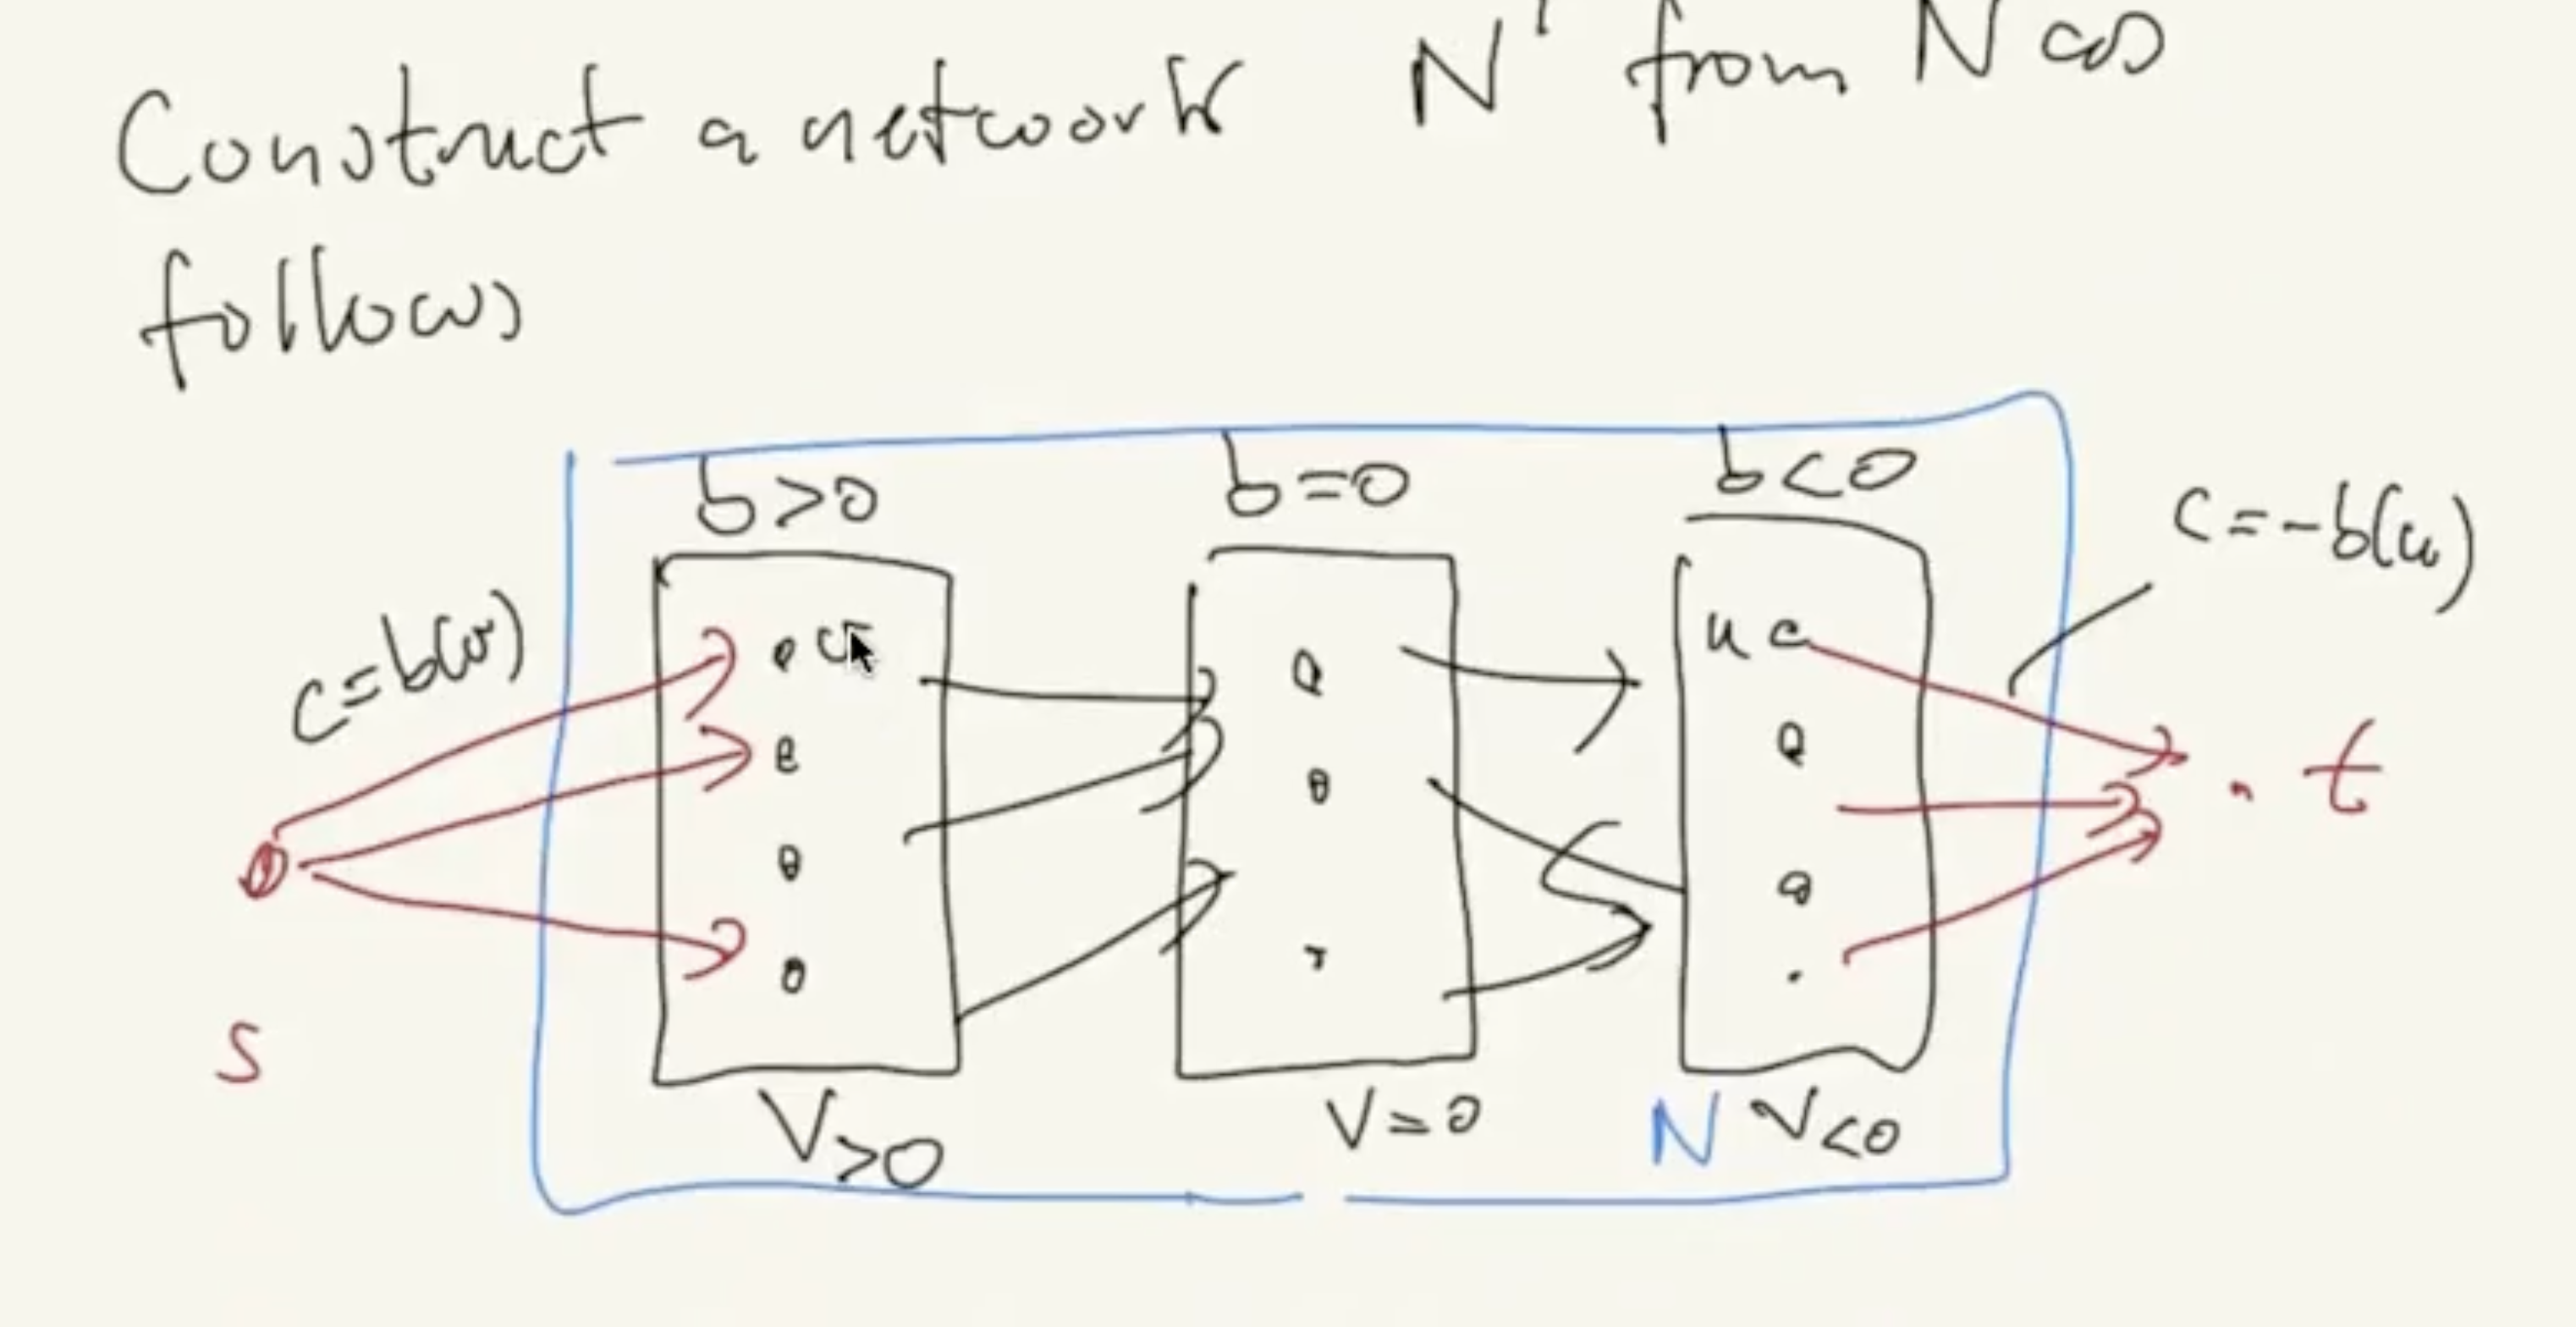 Construct a network N' from N as
follows
b>0 b=0 b<0
c=-b(u)
c=b(v)
v u
t
s
V>0 V=0 N V<0